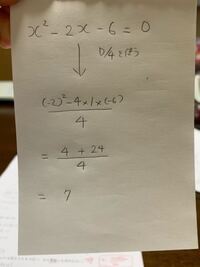 x² - 2x - 6 = 0
D/4を使う
↓
(-2)² - 4×1×(-6)
4
= 4 + 24
4
= 7